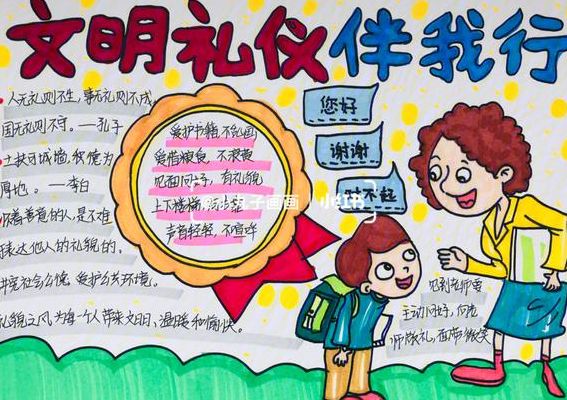 文明礼仪伴我行
人无礼则不生，事无礼则不成
国无礼则不守。——孔子
土扶可城墙，积德为
厚地。——李白
怀着善意的人，是不难
表达他人的礼貌的。
讲究社会公德，爱护公共环境。
礼貌之风，为每一个人带来文明，温暖和愉快。
爱护书籍，不乱画
爱惜粮食，不浪费
见面问好，有礼貌
上下楼梯
声音轻轻，不喧哗
您好
谢谢
对不起
丸子画画
小红书
见到老师要
主动问好，向老
师敬礼，面带微笑